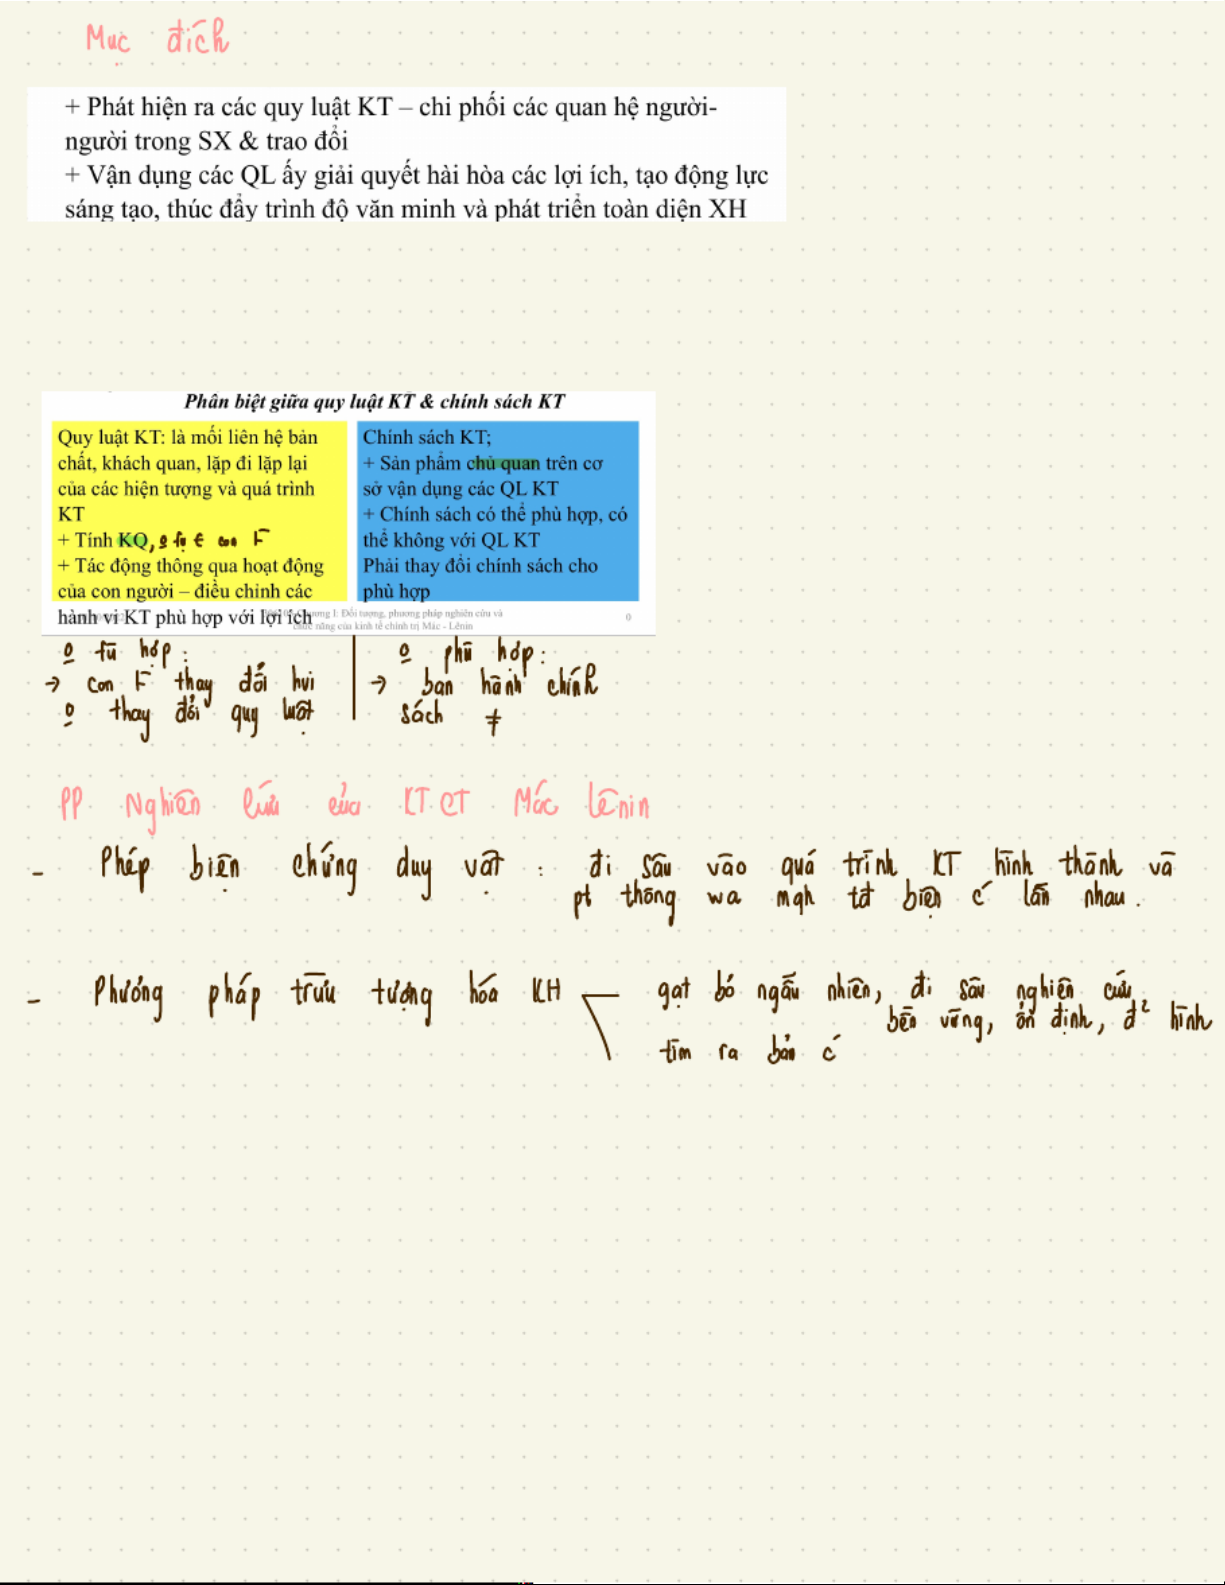 Mục đích
+ Phát hiện ra các quy luật KT – chi phối các quan hệ người-
người trong SX & trao đổi
+ Vận dụng các QL ấy giải quyết hài hòa các lợi ích, tạo động lực
sáng tạo, thúc đẩy trình độ văn minh và phát triển toàn diện XH
Phân biệt giữa quy luật KT & chính sách KT
Quy luật KT: là mối liên hệ bản
chất, khách quan, lặp đi lặp lại
của các hiện tượng và quá trình
KT
+ Tính KQ, o̲ fụ € con F
+ Tác động thông qua hoạt động
của con người – điều chỉnh các
hành vi KT phù hợp với lợi ích
Chính sách KT;
+ Sản phẩm chủ quan trên cơ
sở vận dụng các QL KT
+ Chính sách có thể phù hợp, có
thể không với QL KT
Phải thay đổi chính sách cho
phù hợp
Chương I: Đối tượng, phương pháp nghiên cứu và
chức năng của kinh tế chính trị Mác - Lênin
0
o̲ fù hợp:
→ con F thay đổi hvi
o̲ thay đổi quy luật
o̲ phù hợp:
→ ban hành chính
sách ≠
PP Nghiên cứu của KTCT Mác Lênin
- Phép biện chứng duy vật : đi sâu vào quá trình KT hình thành và
pt thông wa mqh tđ biện c´ lẫn nhau.
- Phương pháp trừu tượng hóa KH gạt bỏ ngẫu nhiên, đi sâu nghiên cứu
bền vững, ổn định, đ² hình
tìm ra bản c´